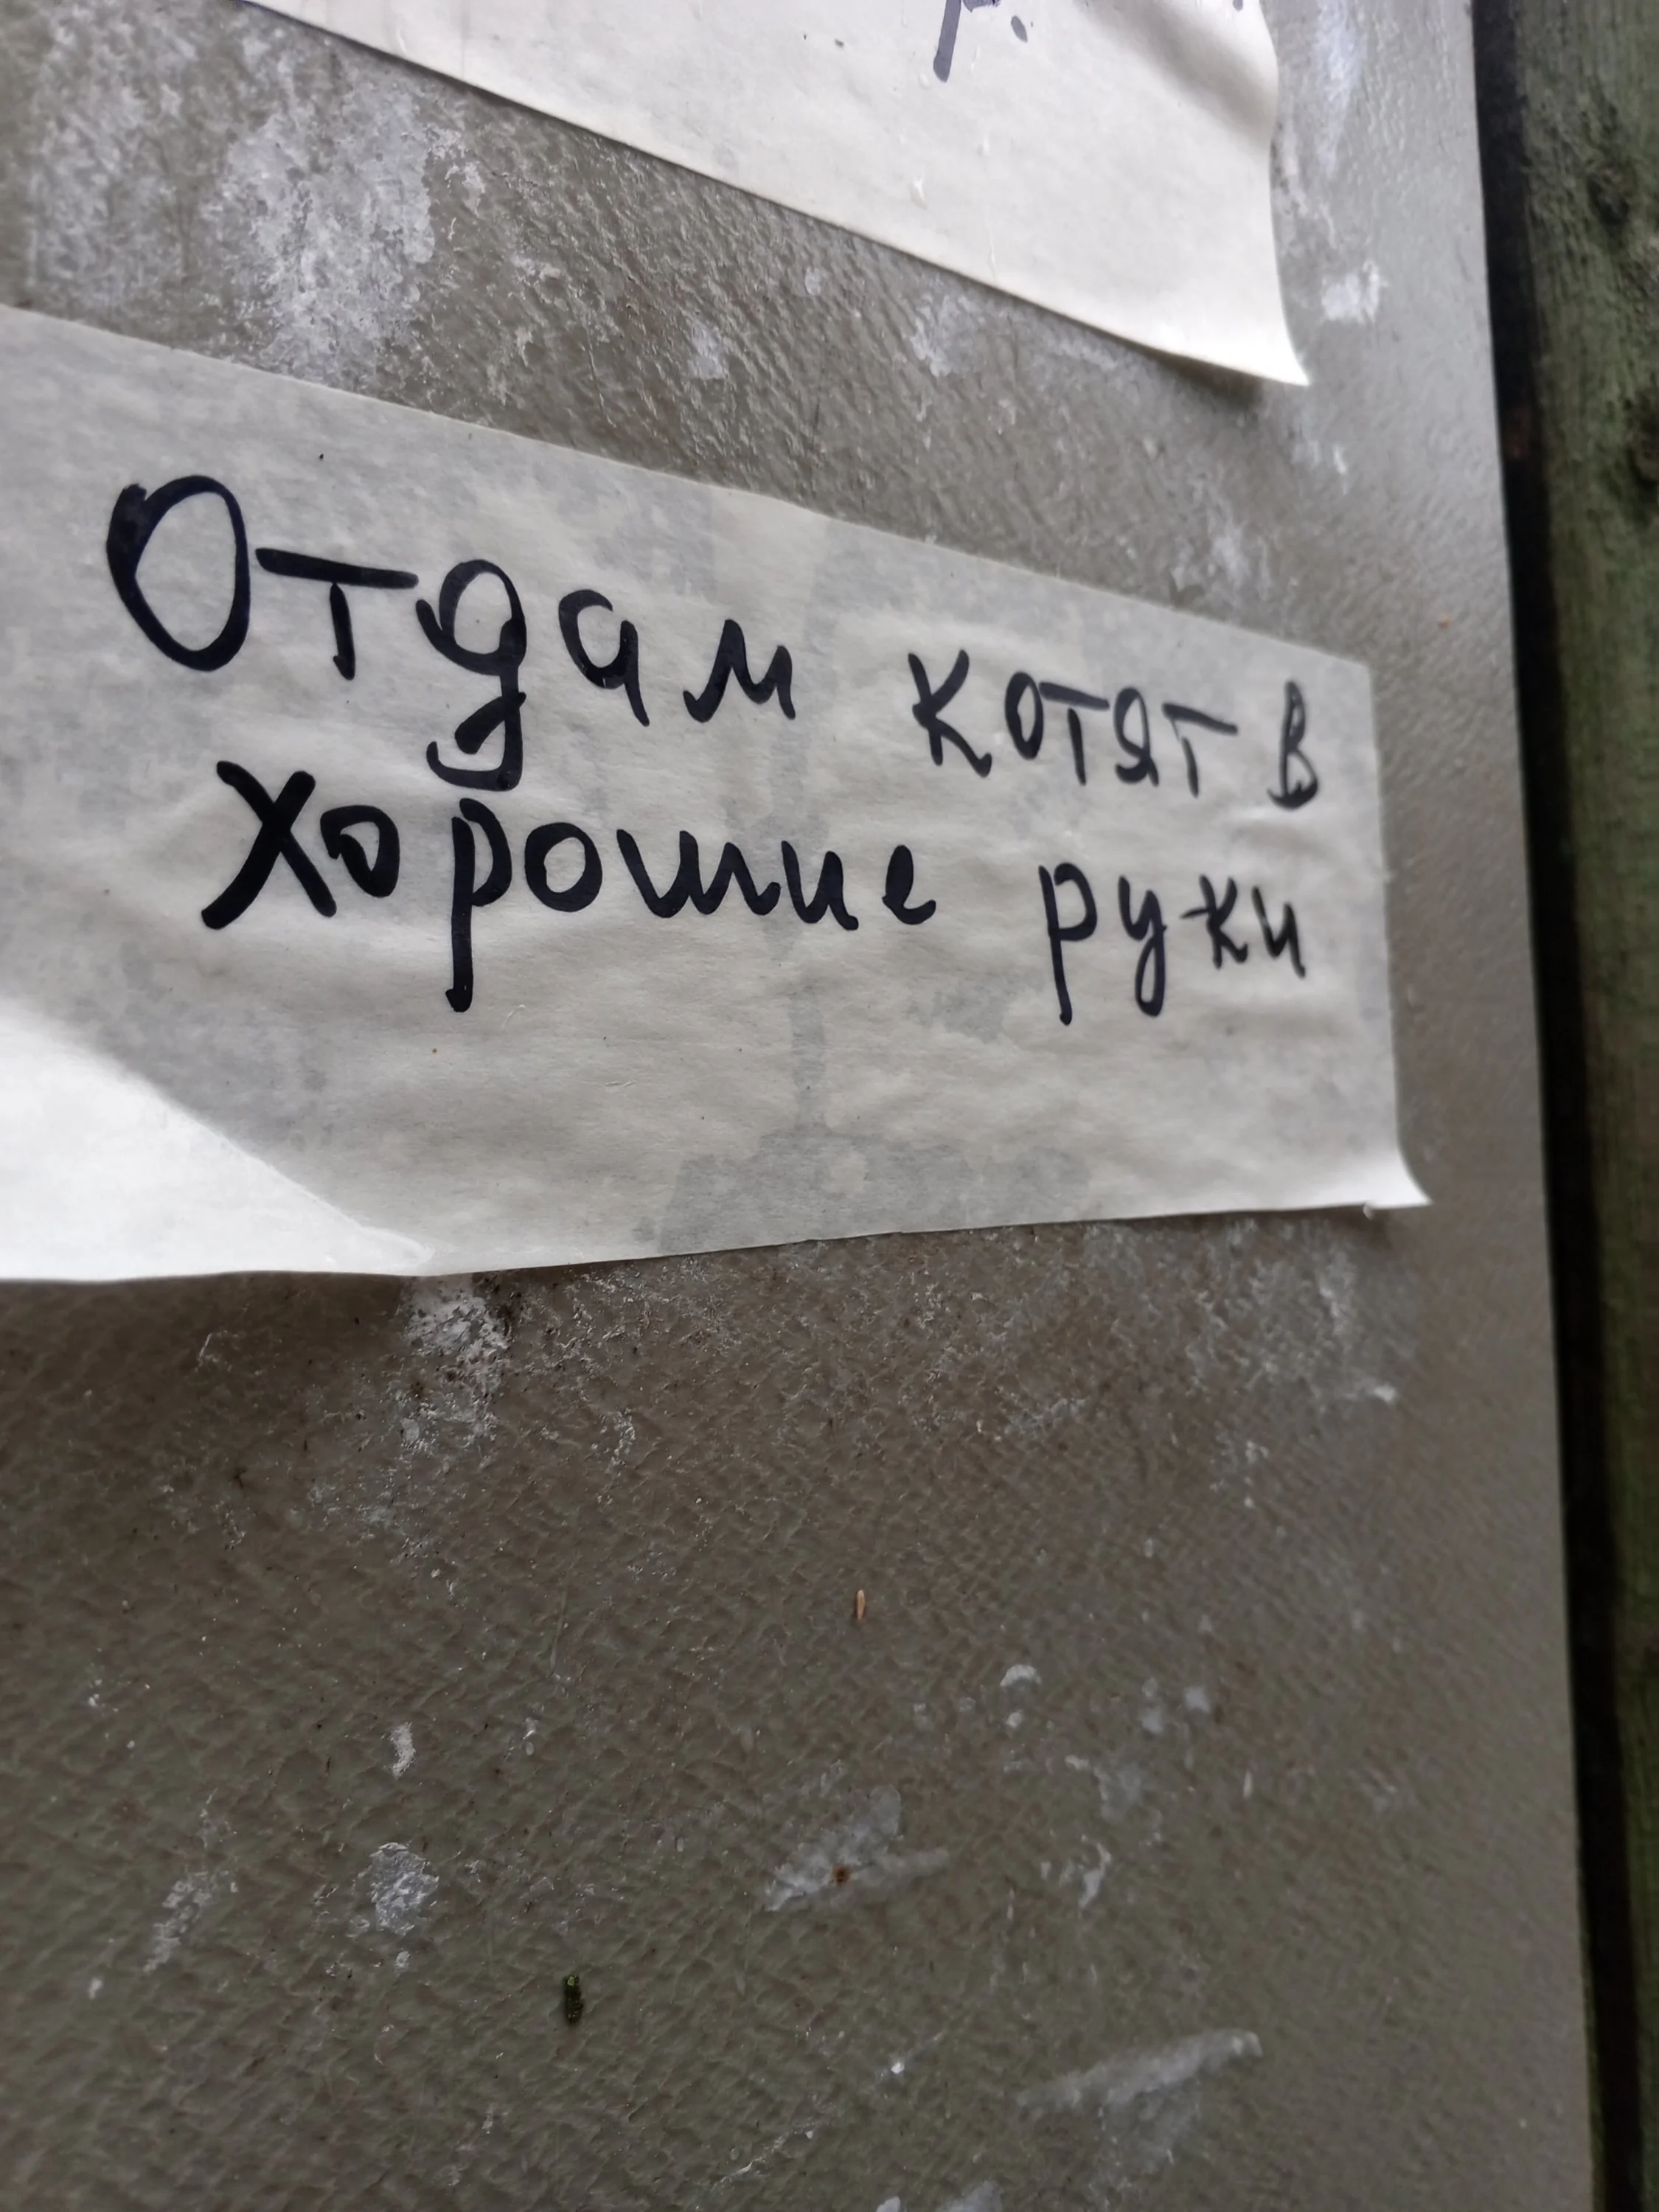 Отдам котят в
хорошие руки